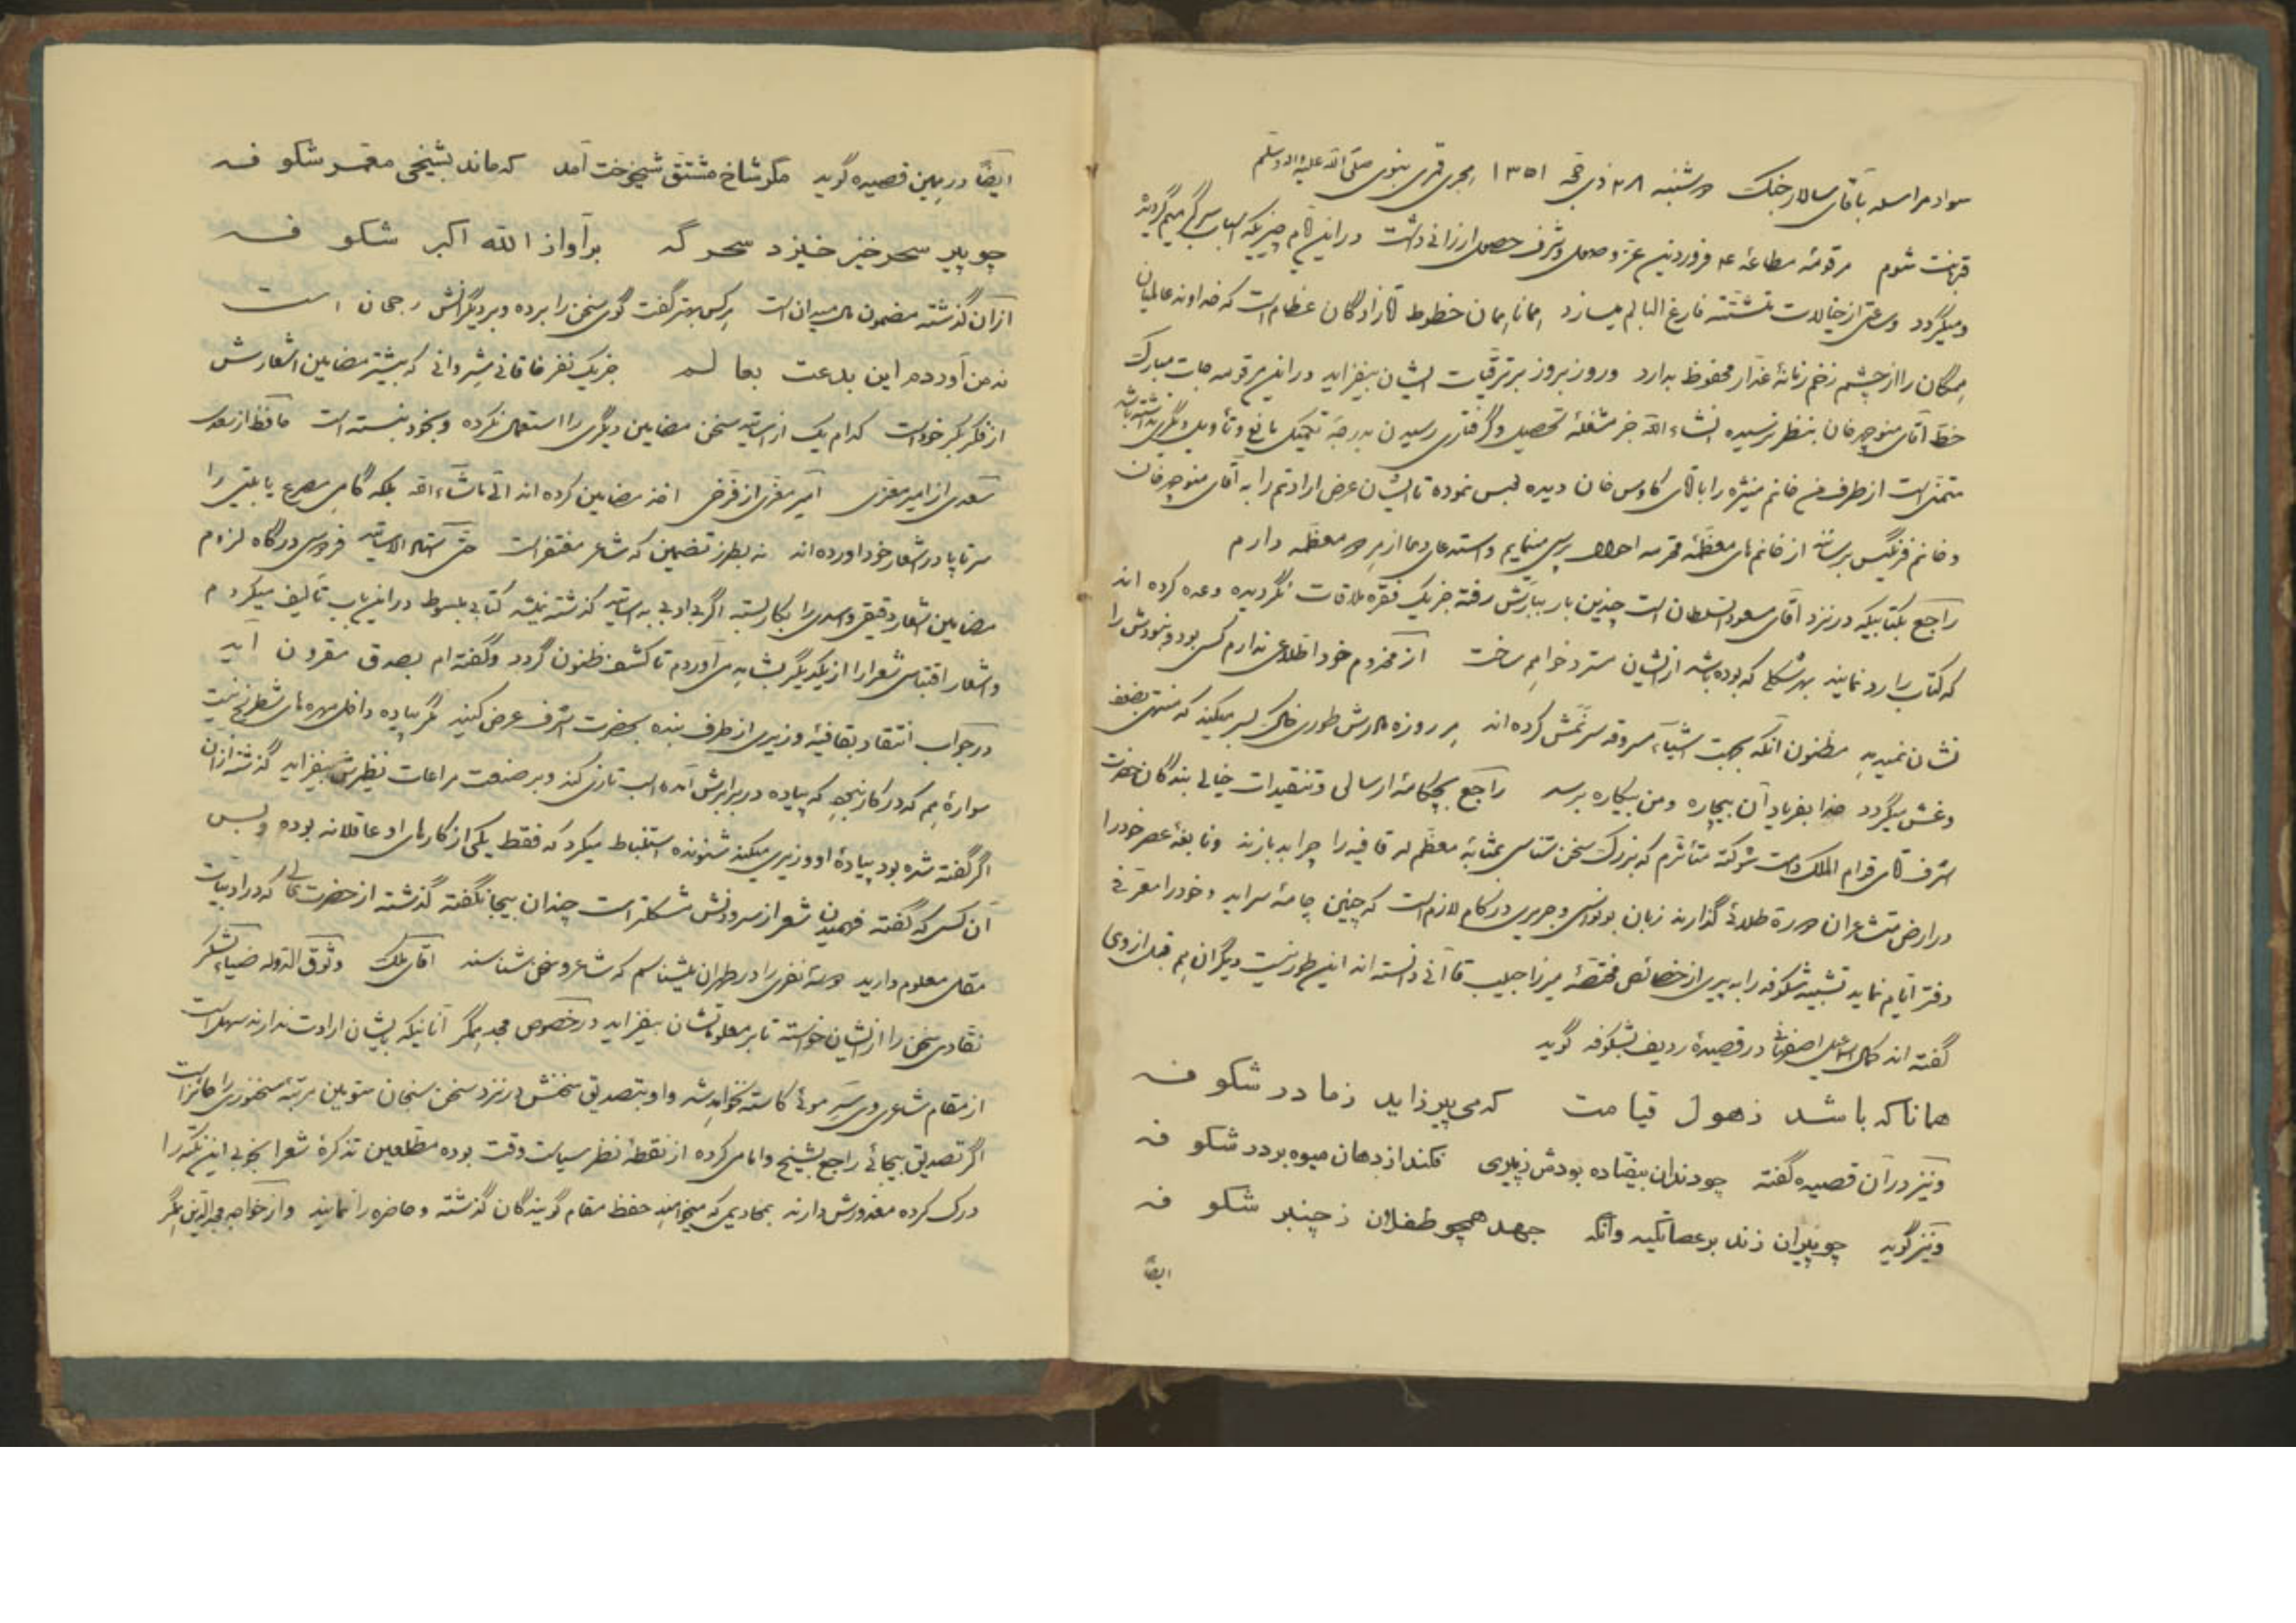 سواد مراسله بآقای سالار جنگ سه شنبه ۲۸ ذی حجه ۱۳۵۱ هجری قمری نبوی صلی الله علیه واله وسلم
قربانت شوم مرقومهٔ مطاعهٔ ۴ فروردین عز وصول و شرف حصول ارزانی داشت در این ایام چیزیکه اسباب سرگرمیم گردیده
و میگردد و ساعتی از خیالات متشتته فارغ البالم میسازد همانا همان خطوط آقازادگان عظام است که خداوند عالمیان
همگان را از چشم زخم زمانهٔ غدار محفوظ بدارد و روز بروز بر ترقیات ایشان بیفزاید در این مرقومه جات مبارک
خط آقای منوچهر خان بنظر نرسیده انشاء الله جز مشغلهٔ تحصیل و گرفتاری رسیدن بدرجهٔ تکمیل مانع و تأویل دیگری نداشته باشد
متمنی است از طرف من خانم منیژه را با آقای کاوس خان دیده بوسی نموده تا ایشان عرض ارادتم را به آقای منوچهر خان
و خانم فرنگیس برسانند از خانم های معظمهٔ محترمه احوال پرسی مینمایم و استدعای دعا از هر سه معظمه دارم
راجع بکتابیکه در نزد آقای مسعود السلطان است چندین بار بیادش رفته جز یک فقره ملاقات نگردیده وعده کرده اند
که کتاب را رد نمایند بهر شکلی که بوده باشد از ایشان مسترد خواهم ساخت از مخدوم خود اطلاعی ندارم کسی بود و خودش را
نشان نمیدهد مظنون آنکه بجهت اشیاء مسروقه سرزنمش کرده اند هر روزه مادرش طوری خاک بسر میکند که منتهی بضعف
و غش میگردد خدا بفریاد آن بیچاره و من بیکاره برسد راجع بچکامهٔ ارسالی و تنقیدات خیالی بندگان حضرت
اشرف آقای قوام الملک دامت شوکته متأثرم که بزرگ سخن شناسی بمثابهٔ معظم له قافیه را چرا بد بازند و نابغهٔ عصر خود را
در ارض متشاعران سدهٔ طلائی گذارند زبان بونواسی و جریری در کام لازم است که چنین چامهٔ سراید و خود را معرفی
دفتر ایام نماید تشبیه شکوفه را به پیری از خصائص مختصهٔ میرزا حبیب قاآنی دانسته اند این طور نیست دیگران هم قبل از وی
گفته اند کمال اسمعیل اصفهانی در قصیدهٔ ردیف شکوفه گوید
همانا که باشد ز هول قیامت که می پیر زاید ز مادر شکوفه
و نیز در آن قصیده گفته چو دندان بیفتاده بودش ز پیری فکند از دهان میوه بر در شکوفه
و نیز گوید چو پیران زند بر عصا تکیه وانگه جهد همچو طفلان ز چنبر شکوفه
ایضاً
ایضاً در همین قصیده گوید مگر شاخ مشتق شیخوخت آمد که ماند بشیخی معمر شکوفه
چو پیر سحر خیز خیزد سحرگه بر آواز الله اکبر شکوفه
از آن گذشته مضمون مال میدان است هر کس بهتر گفت گوی سخن را برده و بر دیگرانش رجحان است
نه من آوردم این بدعت بعالم جز یک نفر خاقانی شیروانی که بیشتر مضامین اشعارش
از فکر بکر خود است کدام یک از اساتید سخن مضامین دیگری را استعمال نکرده و بخود نبسته است حافظ از سعدی
سعدی از امیر معزی امیر معزی از فرخی اخذ مضامین کرده اند الی ماشاء الله بلکه گاهی مصرع یا بیتی را
سر تا پا در اشعار خود آورده اند نه بطرز تضمین که شاعر مفتخر است حتی استاد الاساتید فردوسی در گاه لزوم
مضامین اشعار دقیقی و اسدی را بکار بسته اگر بی ادبی به اساتید گذشته نمیشد کتابی مبسوط در این باب تألیف میکردم
و اشعار اقتباسی شعرا را از یکدیگر بشاهد می آوردم تا کشف ظنون گردد و گفته ام بصدق مقرون آید
در جواب انتقاد بقافیهٔ وزیری از طرف بنده بحضرت اشرف عرض کنید مگر پیاده داخل مهره های شطرنج نیست
سوارهٔ هم که در کار نبوده که پیاده در برابرش آمده اسب تازی کند و بر صنعت مراعات نظیرش بیفزاید گذشته از آن
اگر گفته شده بود پیادهٔ او وزیری میکند شنونده استنباط میکرد که فقط یکی از کارهای او عاقلانه بوده و بس
آن کس که گفته فهمیدن شعر از سرودنش مشکلتر است چندان بیجا نگفته گذشته از حضرت عالی که در ادبیات
مقامی معلوم دارید سه نفری را در طهران میشناسم که شاعر و سخن شناسند آقای ملک وثوق الدوله ضیاء لشکر
نقادی سخن را از ایشان خواسته تا بر معلوماتشان بیفزاید در خصوص مجد همگر آنانیکه بایشان ارادت ندارند سهل است
از مقام شاعری وی سر موئی کاسته نخواهد شد و او بتصدیق سخنش در نزد سخن سنجان متوین مرتبهٔ سخنوری را حائز است
اگر تصدیق بیجائی راجع بشیخ و امامی کرده از نقطهٔ نظر سیاست وقت بوده مطلعین تذکرهٔ شعرا بخوبی این نکته را
درک کرده معذورش دارند بمخادیمی که میخواهند حفظ مقام گویندگان گذشته و حاضره را نمایند و از خواجه مجدالدین همگر